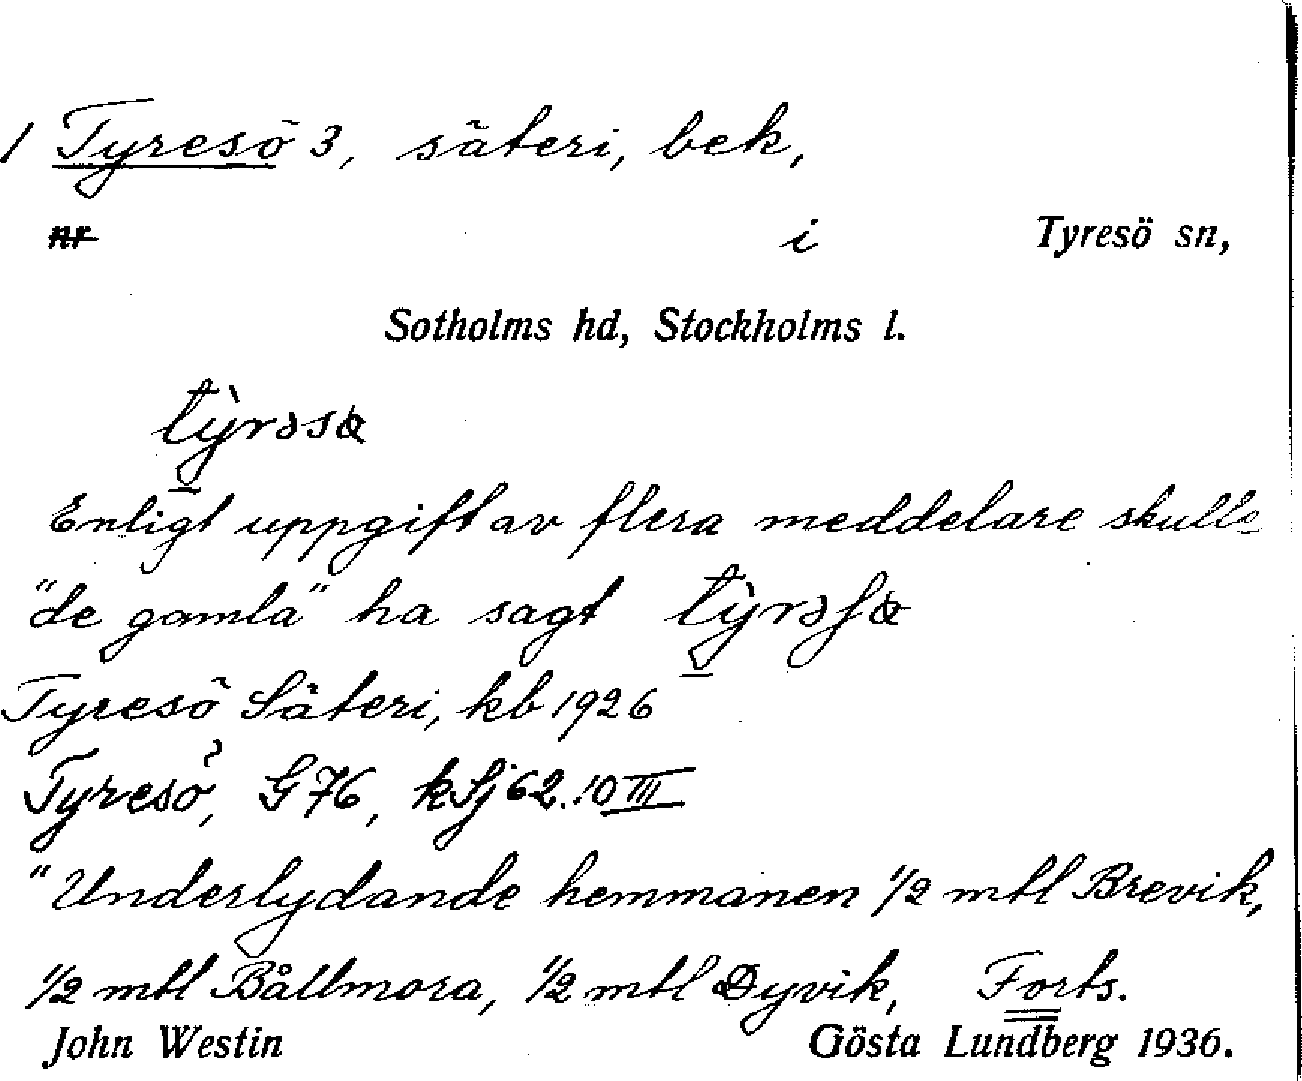 1 Tyresö 3, säteri, bek,
nr i Tyresö sn,
Sotholms hd, Stockholms l.
Enligt uppgift av flera meddelare skulle
"de gamla" ha sagt
Tyresö Säteri, kb 1926
Tyresö, G 76, kSj 62..10 III
"Underlydande hemmanen 1/2 mtl Brevik,
1/2 mtl Bållmora, 1/2 mtl Dyvik, Forts.
John Westin Gösta Lundberg 1936.